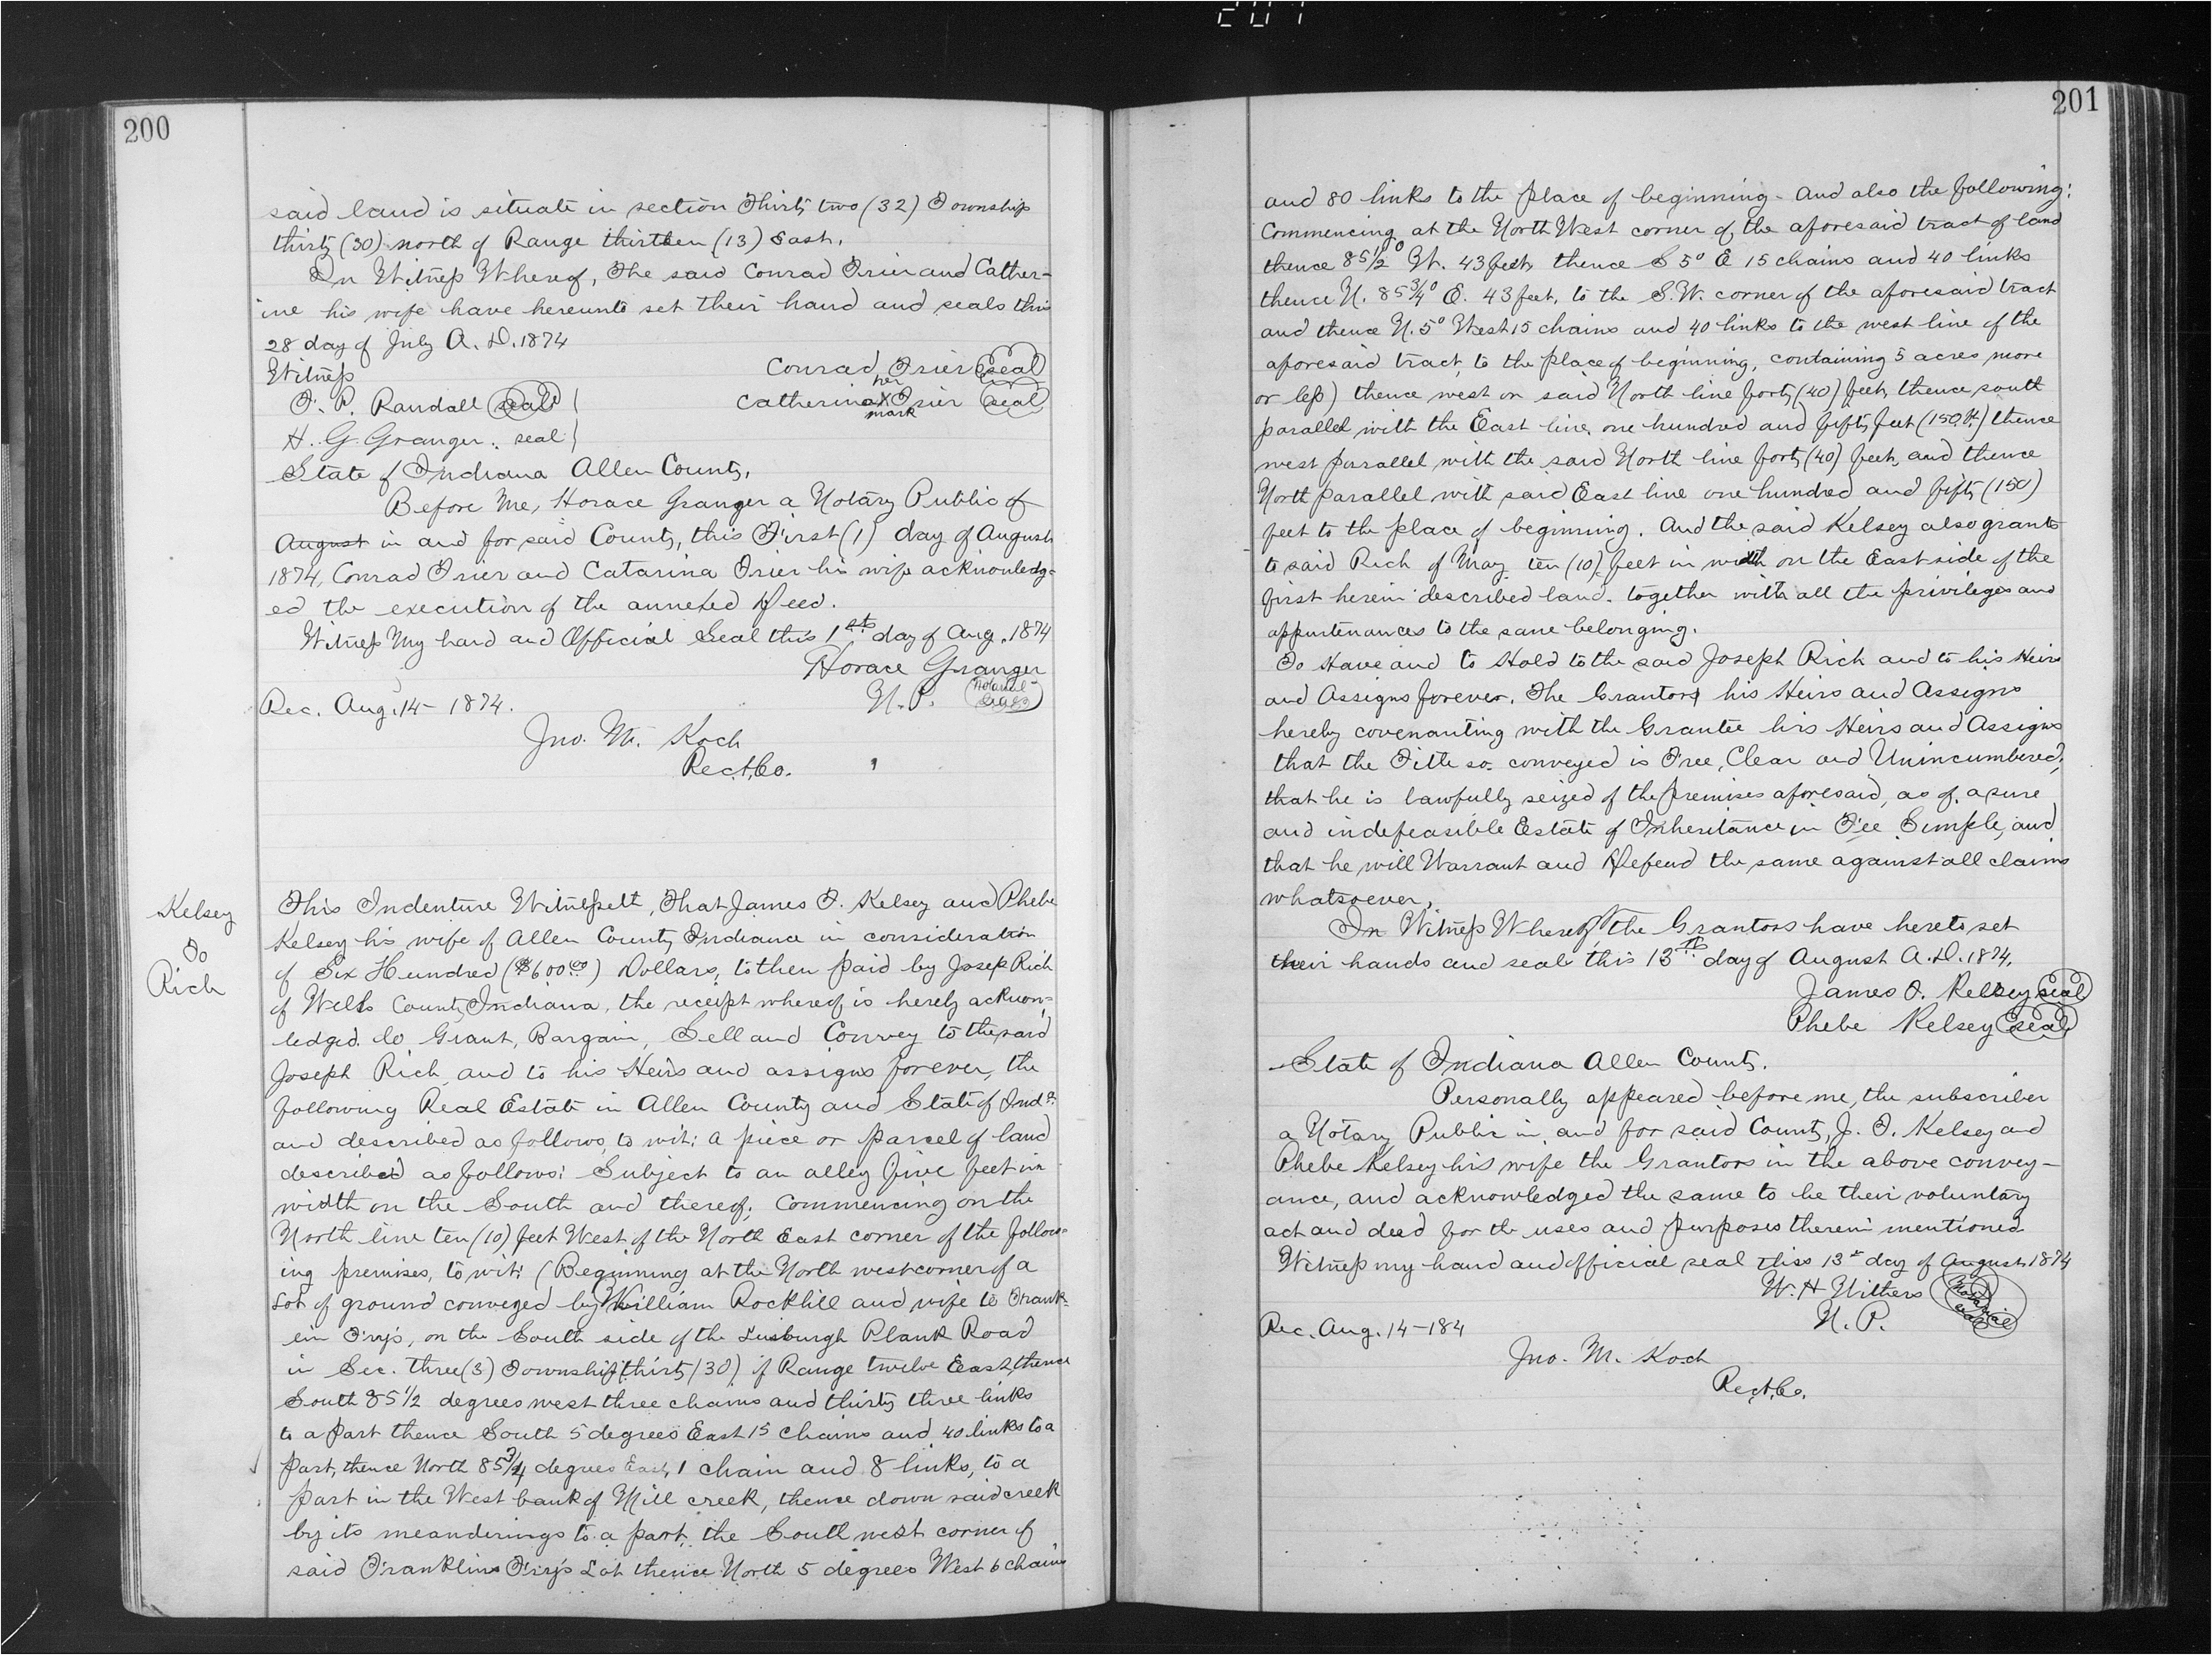 201
200
said land is situate in section Thirty two (32) Township
thirty (30) north of Range thirteen (13) East.
In Witness Whereof, The said Conrad Trier and Cather-
ine his wife have hereunto set their hand and seals this
28 day of July A. D. 1874
Witness
Conrad Trier seal
her
F. P. Randall seal
Catherina X Trier seal
mark
H. G. Granger. seal
State of Indiana Allen County,
Before Me, Horace Granger a Notary Public of
August in and for said County, this First (1) day of August
1874, Conrad Trier and Catarina Trier his wife acknowledg-
ed the execution of the annexed Deed.
Witness My hand and Official Seal this 1st day of Aug. 1874
Horace Granger
N. P. Notarial Seal
Rec. Aug. 14- 1874.
Jno. M. Koch
Rec. A. Co.
Kelsey
To
Rich
This Indenture Witnesseth, That James T. Kelsey and Phebe
Kelsey his wife of Allen County Indiance in consideration
of Six Hundred ($600.00) Dollars, to then paid by Josep Rich
of Wells County Indiana, the receipt whereof is hereby acknow=
ledged. do Grant, Bargain, Sell and Convey to the said
Joseph Rich and to his Heirs and assigns forever, the
following Real Estate in Allen County and State of Inda.
and described as follows, to wit: a piece or parcel of land
described as follows: Subject to an alley five feet in
width on the South and thereof, Commencing on the
North line ten (10) feet West of the North East corner of the follow=
ing premises, to wit: (Beginning at the North west corner of a
Lot of ground conveyed by William Rockhill and wife to Frank=
ein Fry's, on the South side of the Plank Road
in Sec. three (3) Township thirty (30) of Range twelve East, thence
South 85 1/2 degrees west three chains and thirty three links
to a part thence South 5 degrees East 15 chains and 40 links to a
part, thence North 85 3/4 degrees East, 1 chain and 8 links, to a
part in the West bank of Mill creek, thence down said creek
by its meanderings to a part, the South west corner of
said Franklins Fry's Lot thence North 5 degrees West 6 chains
201
and 80 links to the place of beginning- And also the following:
Commencing at the North West corner of the aforesaid tract of land
thence 85 1/2° W. 43 feet, thence S 5° E 15 chains and 40 links
thence N. 85 3/4° E. 43 feet, to the S.W. corner of the aforesaid tract
and thence N. 5° West 15 chains and 40 links to the west line of the
aforesaid tract, to the place of beginning, containing 5 acres more
or less) thence west on said North line forty (40) feet, thence south
parallel with the East line, one hundred and fifty feet (150 ft.) thence
west parallel with the said North line forty (40) feet, and thence
North parallel with said East line one hundred and fifty (150)
feet to the place of beginning. And the said Kelsey also grants
to said Rich of May ten (10) feet in width on the East side of the
first herein described land. together with all the privileges and
appurtenances to the same belonging.
To Have and to Hold to the said Joseph Rich and to his Heirs
and Assigns forever. The Grantors his Heirs and Assigns
hereby covenanting with the Grantee his Heirs and Assigns
that the Title so conveyed is Free, Clear and Unincumbered,
that he is lawfully seized of the premises aforesaid, as of a sure
and indefeasible Estate of Inheritance in Fee Simple, and
that he will Warrant and Defend the same against all claims
whatsoever,
In Witness Whereof, the Grantors have hereto set
their hands and seals this 13th day of August A. D. 1874.
James T. Kelsey seal
Phebe Kelsey seal
State of Indiana Allen County.
Personally appeared before me, the subscriber
a Notary Public in and for said County, J. T. Kelsey and
Phebe Kelsey his wife the Grantors in the above convey-
ance, and acknowledged the same to be their voluntary
act and deed for the uses and purposes therein mentioned
Witness my hand and official seal this 13th day of August 1874
W. H Withers Notarial seal
N. P.
Rec. Aug. 14-184
Jno. M. Koch
Rec. A. Co.